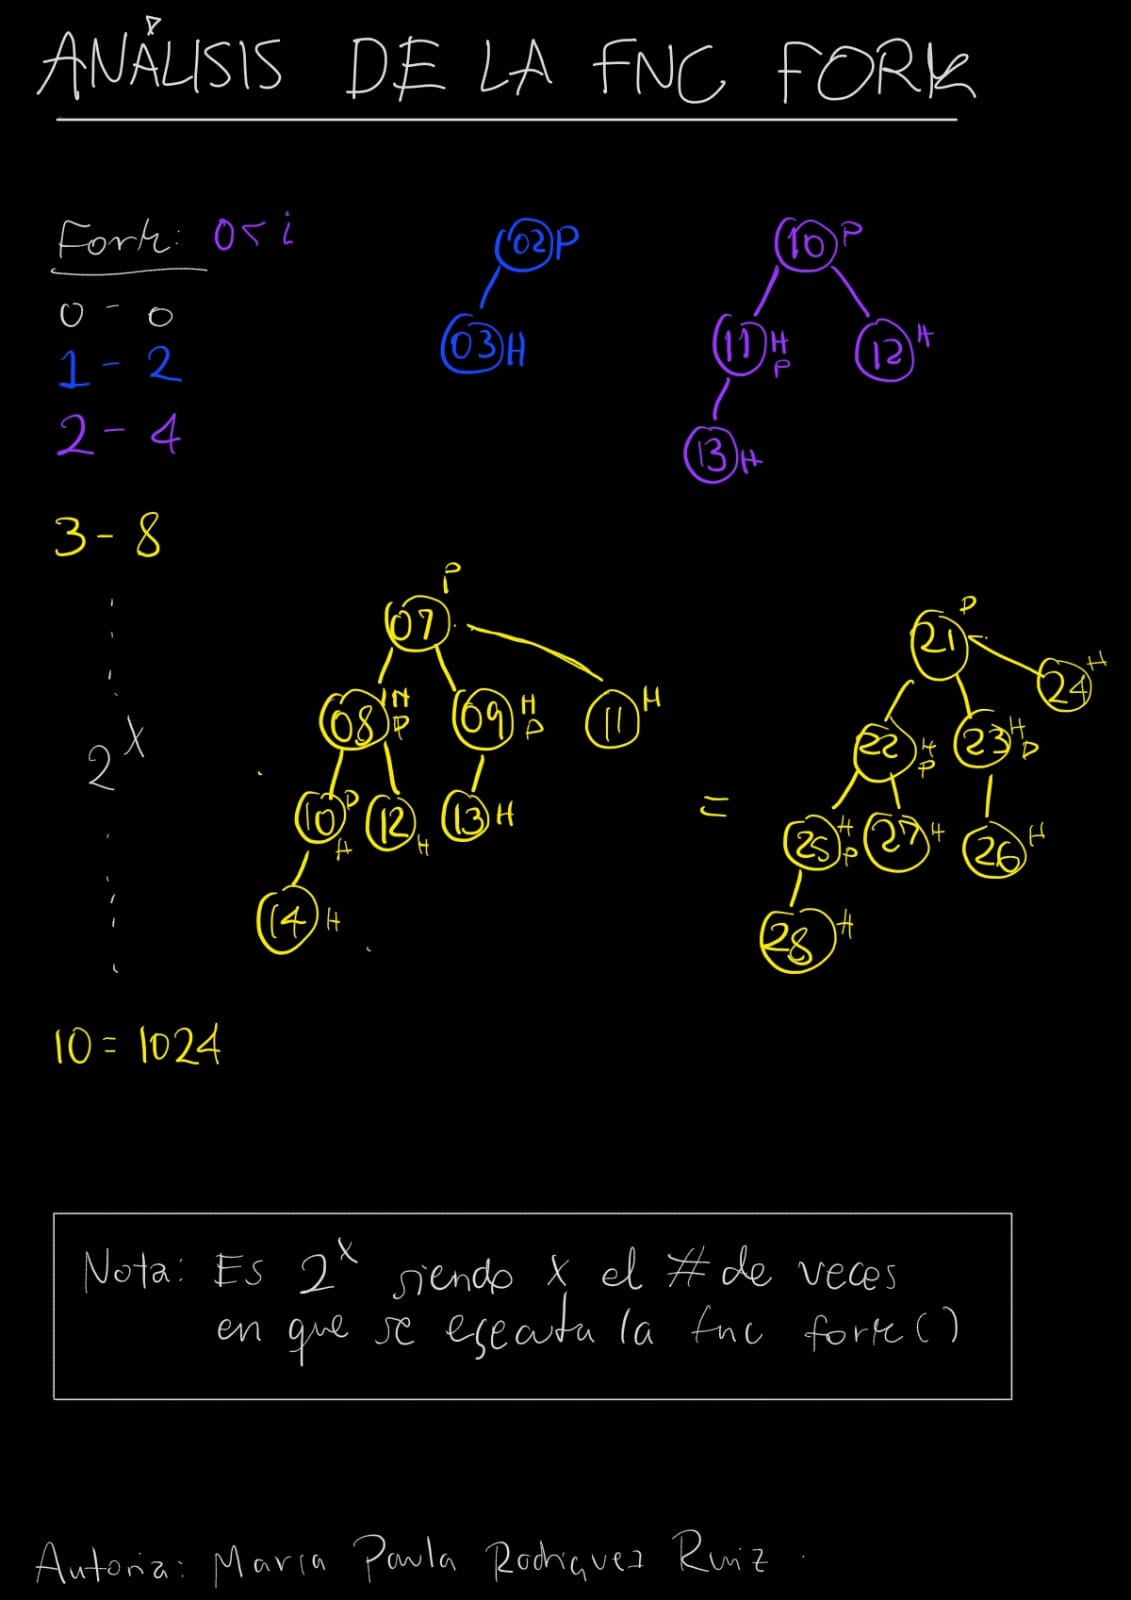 ANÁLISIS DE LA FNC FORK
Fork: 0 < i
0 - 0
1 - 2
2 - 4
02 P
03 H
10 P
11 H P
12 H
13 H
3 - 8
2^x
10 = 1024
P
07
08 H P
09 H P
11 H
10 P H
12 H
13 H
14 H
=
P
21
24 H
22 H P
23 H P
25 H P
27 H
26 H
28 H
Nota: Es 2^x siendo x el # de veces
en que se egecuta la fnc fork()
Autoria: Maria Paula Rodriguez Ruiz